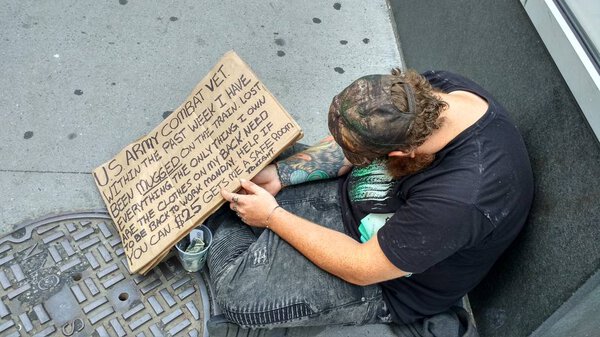 US ARMY COMBAT VET
WITHIN THE PAST WEEK I HAVE
BEEN MUGGED ON THE TRAIN LOST
EVERYTHING THE ONLY THING I OWN
ARE THE CLOTHES ON MY BACK NEED
TO BE BACK @ WORK MONDAY HELP IF
YOU CAN $25 GETS ME A SAFE ROOM
TONIGHT